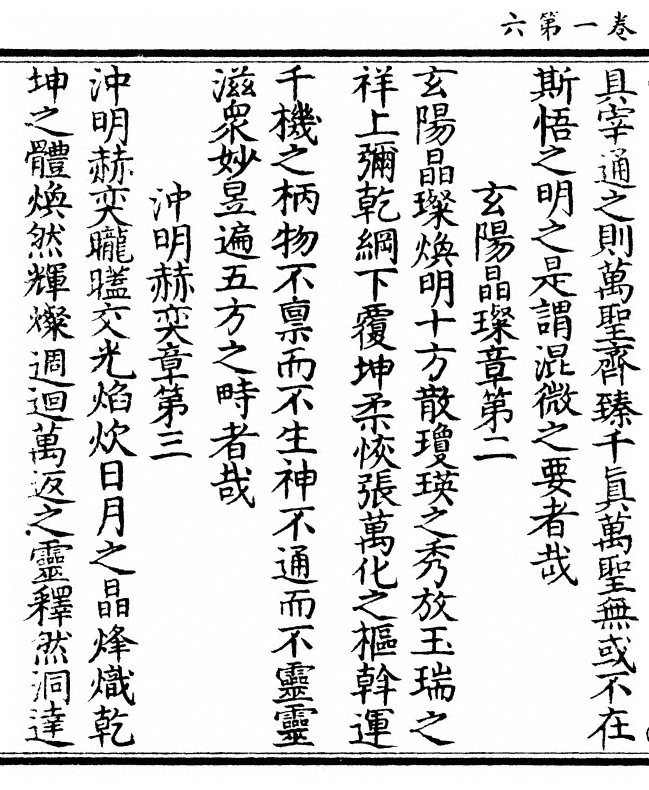 卷一第六
具宰通之則萬聖齊臻千眞萬聖無或不在
斯悟之明之是謂混微之要者哉
玄陽晶璨章第二
玄陽晶璨煥明十方散瓊瑛之秀放玉瑞之
祥上彌乾綱下覆坤柔恢張萬化之樞斡運
千機之柄物不稟而不生神不通而不靈靈
滋衆妙昱遍五方之時者哉
沖明赫奕章第三
沖明赫奕曨㬎交光焰炊日月之晶烽熾乾
坤之體煥然輝燦週迴萬返之靈釋然洞達